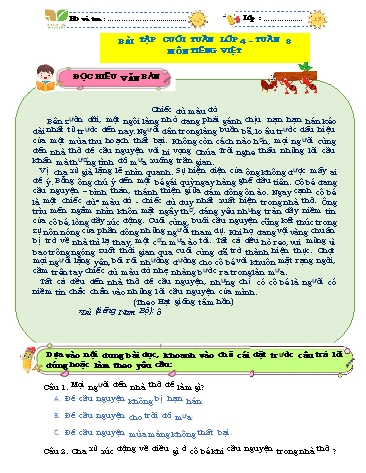 Họ và tên: ........................ Lớp: ....................
BÀI TẬP CUỐI TUẦN LỚP 4 – TUẦN 8
MÔN TIẾNG VIỆT
ĐỌC HIỂU VĂN BẢN
Chiếc dù màu đỏ
Bên sườn đồi, một ngôi làng nhỏ đang phải gánh chịu nạn hạn hán kéo
dài nhất từ trước đến nay. Người dân trong làng buồn bã, lo âu trước dấu hiệu
của một mùa thu hoạch thất bại. Không còn cách nào hơn, mọi người cùng
đến nhà thờ để cầu nguyện với hi vọng Chúa Trời nghe thấu những lời cầu
khẩn mà thương tình đổ mưa xuống trần gian.
Vị cha xứ già lặng lẽ nhìn quanh. Sự hiện diện của ông không được mấy ai
để ý. Bỗng ông chú ý đến một bé gái quỳ ngay hàng ghế đầu tiên. Cô bé đang
cầu nguyện – bình thản, thánh thiện giữa đám đông ồn ào. Ngay cạnh cô bé
là một chiếc dù* màu đỏ - chiếc dù duy nhất xuất hiện trong nhà thờ. Ông
trìu mến ngắm nhìn khuôn mặt ngây thơ, đáng yêu nhưng tràn đầy niềm tin
của cô bé, lòng đầy xúc động. Cuối cùng, buổi cầu nguyện cũng kết thúc trong
sự nôn nóng của phần đông những người tham dự. Khi họ đang vội vàng chuẩn
bị trở về nhà thì lạ thay, một cơn mưa ào tới. Tất cả đều hò reo, vui mừng vì
bao trông ngóng suốt thời gian qua cuối cùng đã trở thành hiện thực. Chợt
mọi người lặng yên, bối rối nhường đường cho cô bé với khuôn mặt rạng ngời,
cầm trên tay chiếc dù màu đỏ nhẹ nhàng bước ra trong làn mưa.
Tất cả đều đến nhà thờ để cầu nguyện, nhưng chỉ có cô bé là người có
niềm tin chắc chắn vào những lời cầu nguyện của mình.
(Theo Hạt giống tâm hồn)
*Dù (tiếng Nam Bộ): ô
Dựa vào nội dung bài đọc, khoanh vào chữ cái đặt trước câu trả lời
đúng hoặc làm theo yêu cầu:
Câu 1. Mọi người đến nhà thờ để làm gì?
A. Để cầu nguyện không bị hạn hán
B. Để cầu nguyện cho trời đổ mưa
C. Để cầu nguyện mùa màng không thất bại
Câu 2. Cha xứ xúc động về điều gì ở cô bé khi cầu nguyện trong nhà thờ?